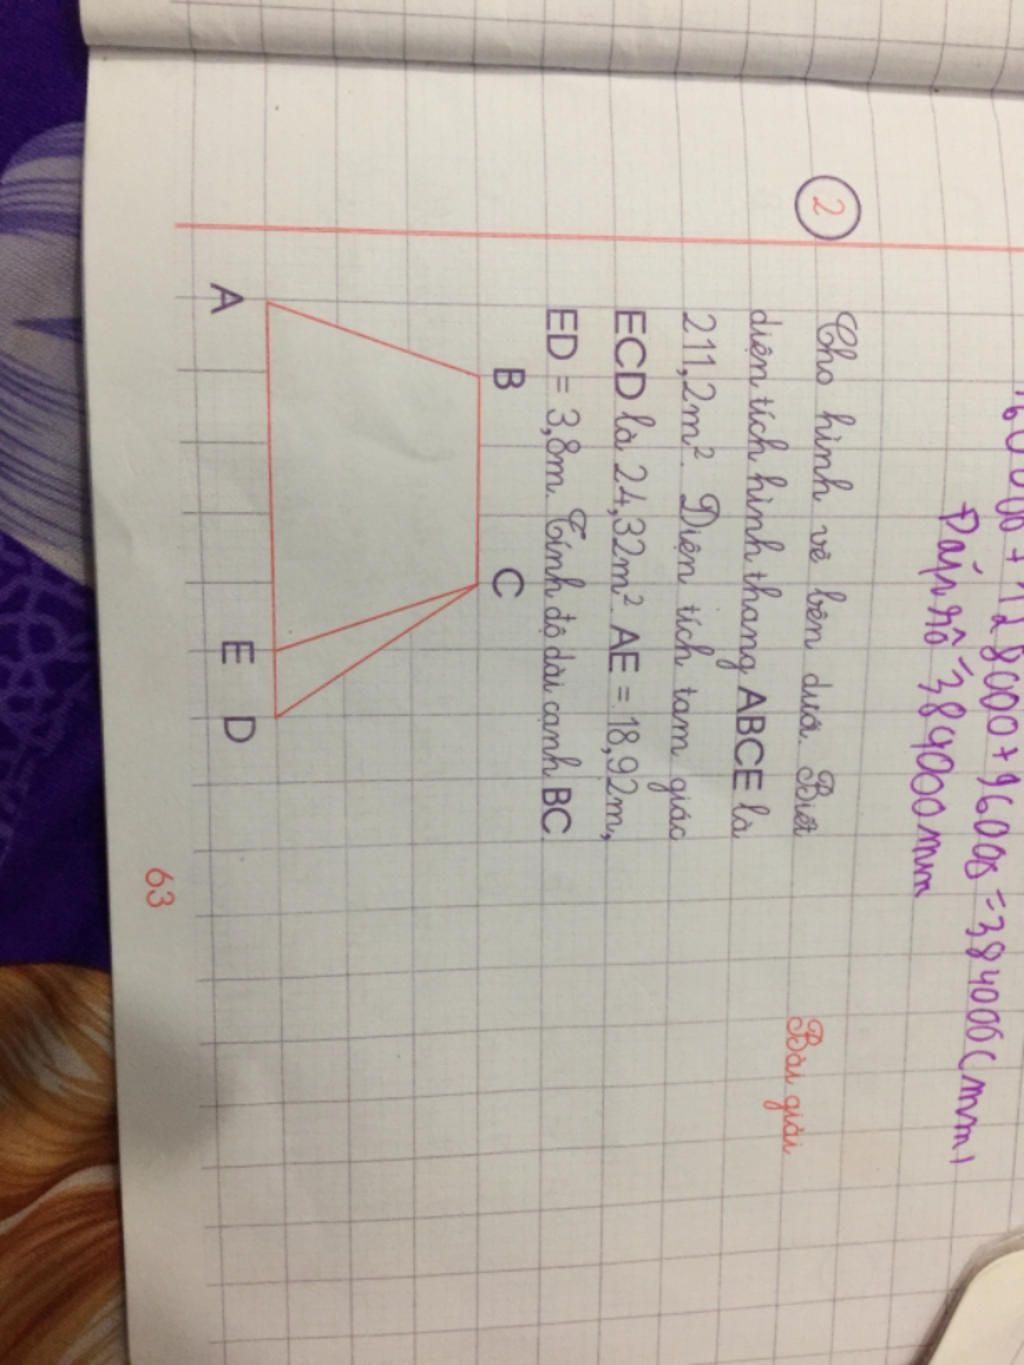 000 + 128000 + 96000 = 384000 (mm)
Đáp số = 384000 mm
2
Cho hình vẽ bên dưới. Biết
diện tích hình thang ABCE là
211,2m². Diện tích tam giác
ECD là 24,32m². AE = 18,92m,
ED = 3,8m. Tính độ dài cạnh BC.
Bài giải
B C
A E D
63